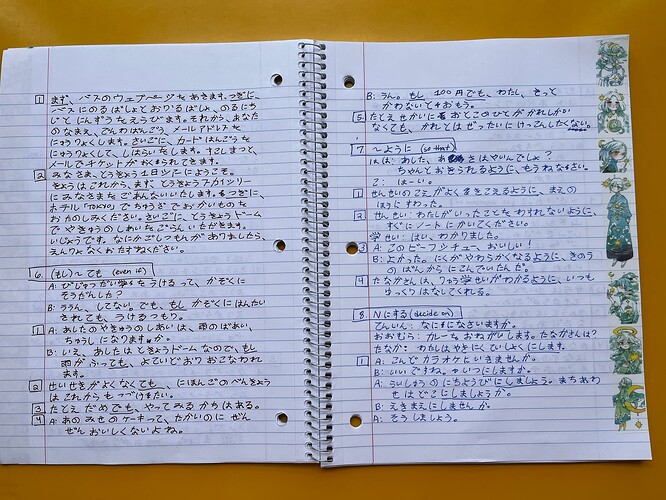 1 まず、バスのウェブページをあきます。つぎに、
バスにのるばしょとおりるばしょ、のるにち
じとにんずうをえらびます。それから、あなた
のなまえ、でんわばんごう、メールアドレスを
にゅうりょくします。さいごに、カードばんごうを
にゅうりょくして、しはらいをします。すこしまつと、
メールでチケットがおくられてきます。
2 みなさま、とうきょう1日ツアーにようこそ。
きょうはこれから、まず、とうきょうスカイツリー
にみなさまをごあんないいたします。つぎに、
ホテル「TOKYO」でちゅうざでおかいものを
おたのしみください。さいごに、とうきょうドーム
でやきゅうのしあいをごらんいただきます。
いじょうです。なにかごしつもんがありましたら、
えんりょなくおたずねください。
6. (もし)〜ても (even if)
A: びじゅつだい学をうけるって、かぞくに
そうだんした?
B: ううん、してない。でも、もしかぞくにはんたい
されても、うけるつもり。
1 A: あしたのやきゅうのしあいは、雨のばあい、
ちゅうしになりますか。
B: いえ、あしたはとうきょうドームなので、もし
雨がふっても、よていどおりおこなわれ
ます。
2 せいせきがよくなくても、にほんごのべんきょう
はこれからもつづけたい。
3 たとえだめでも、やってみるかちはある。
4 A: あのみせのケーキって、たかいのにぜん
ぜんおいしくないよね。
B: うん。もし100円でも、わたし、きっと
かわないとおもう。
5. たとえせかいにおとこのひとがかれしか
なくても、かれとはぜったいにけっこんしたくない。
7. 〜ように (so that)
はは: あした、あさはやいんでしょ?
ちゃんとおきられるように、もうねなさい。
こ: はーい。
1 せんせいのこえがよくきこえるように、まえの
ほうにすわった。
2 せんせい: わたしがいったことをわすれないように、
すぐにノートにかいてください。
学せい: はい、わかりました。
3 A: このビーフシチュー、おいしい!
B: よかった。にくがやわらかくなるように、きのう
のばんからにこんでいたんだ。
4 たなかさんは、りゅう学せいがわかるように、いつも
ゆっくりはなしてくれる。
8. Nにする (decide on)
てんいん: なにになさいますか。
おおむら: カレーをおねがいします。たなかさんは?
たなか: わたしはやきにくていしょくにします。
1 A: こんどカラオケにいきませんか。
B: いいですね。いつにしますか。
A: らいしゅうのにちようびにしましょう。まちあわ
せはどこにしましょうか。
B: えきまえにしませんか。
A: そうしましょう。